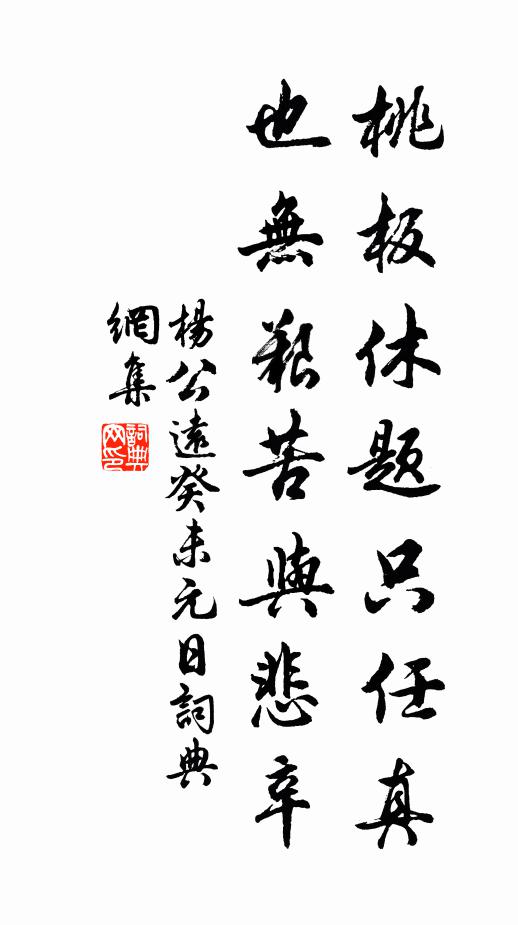 桃板休題只任真
也無艱苦與悲辛
楊公遠癸未元日詞典
網集
詞典网印